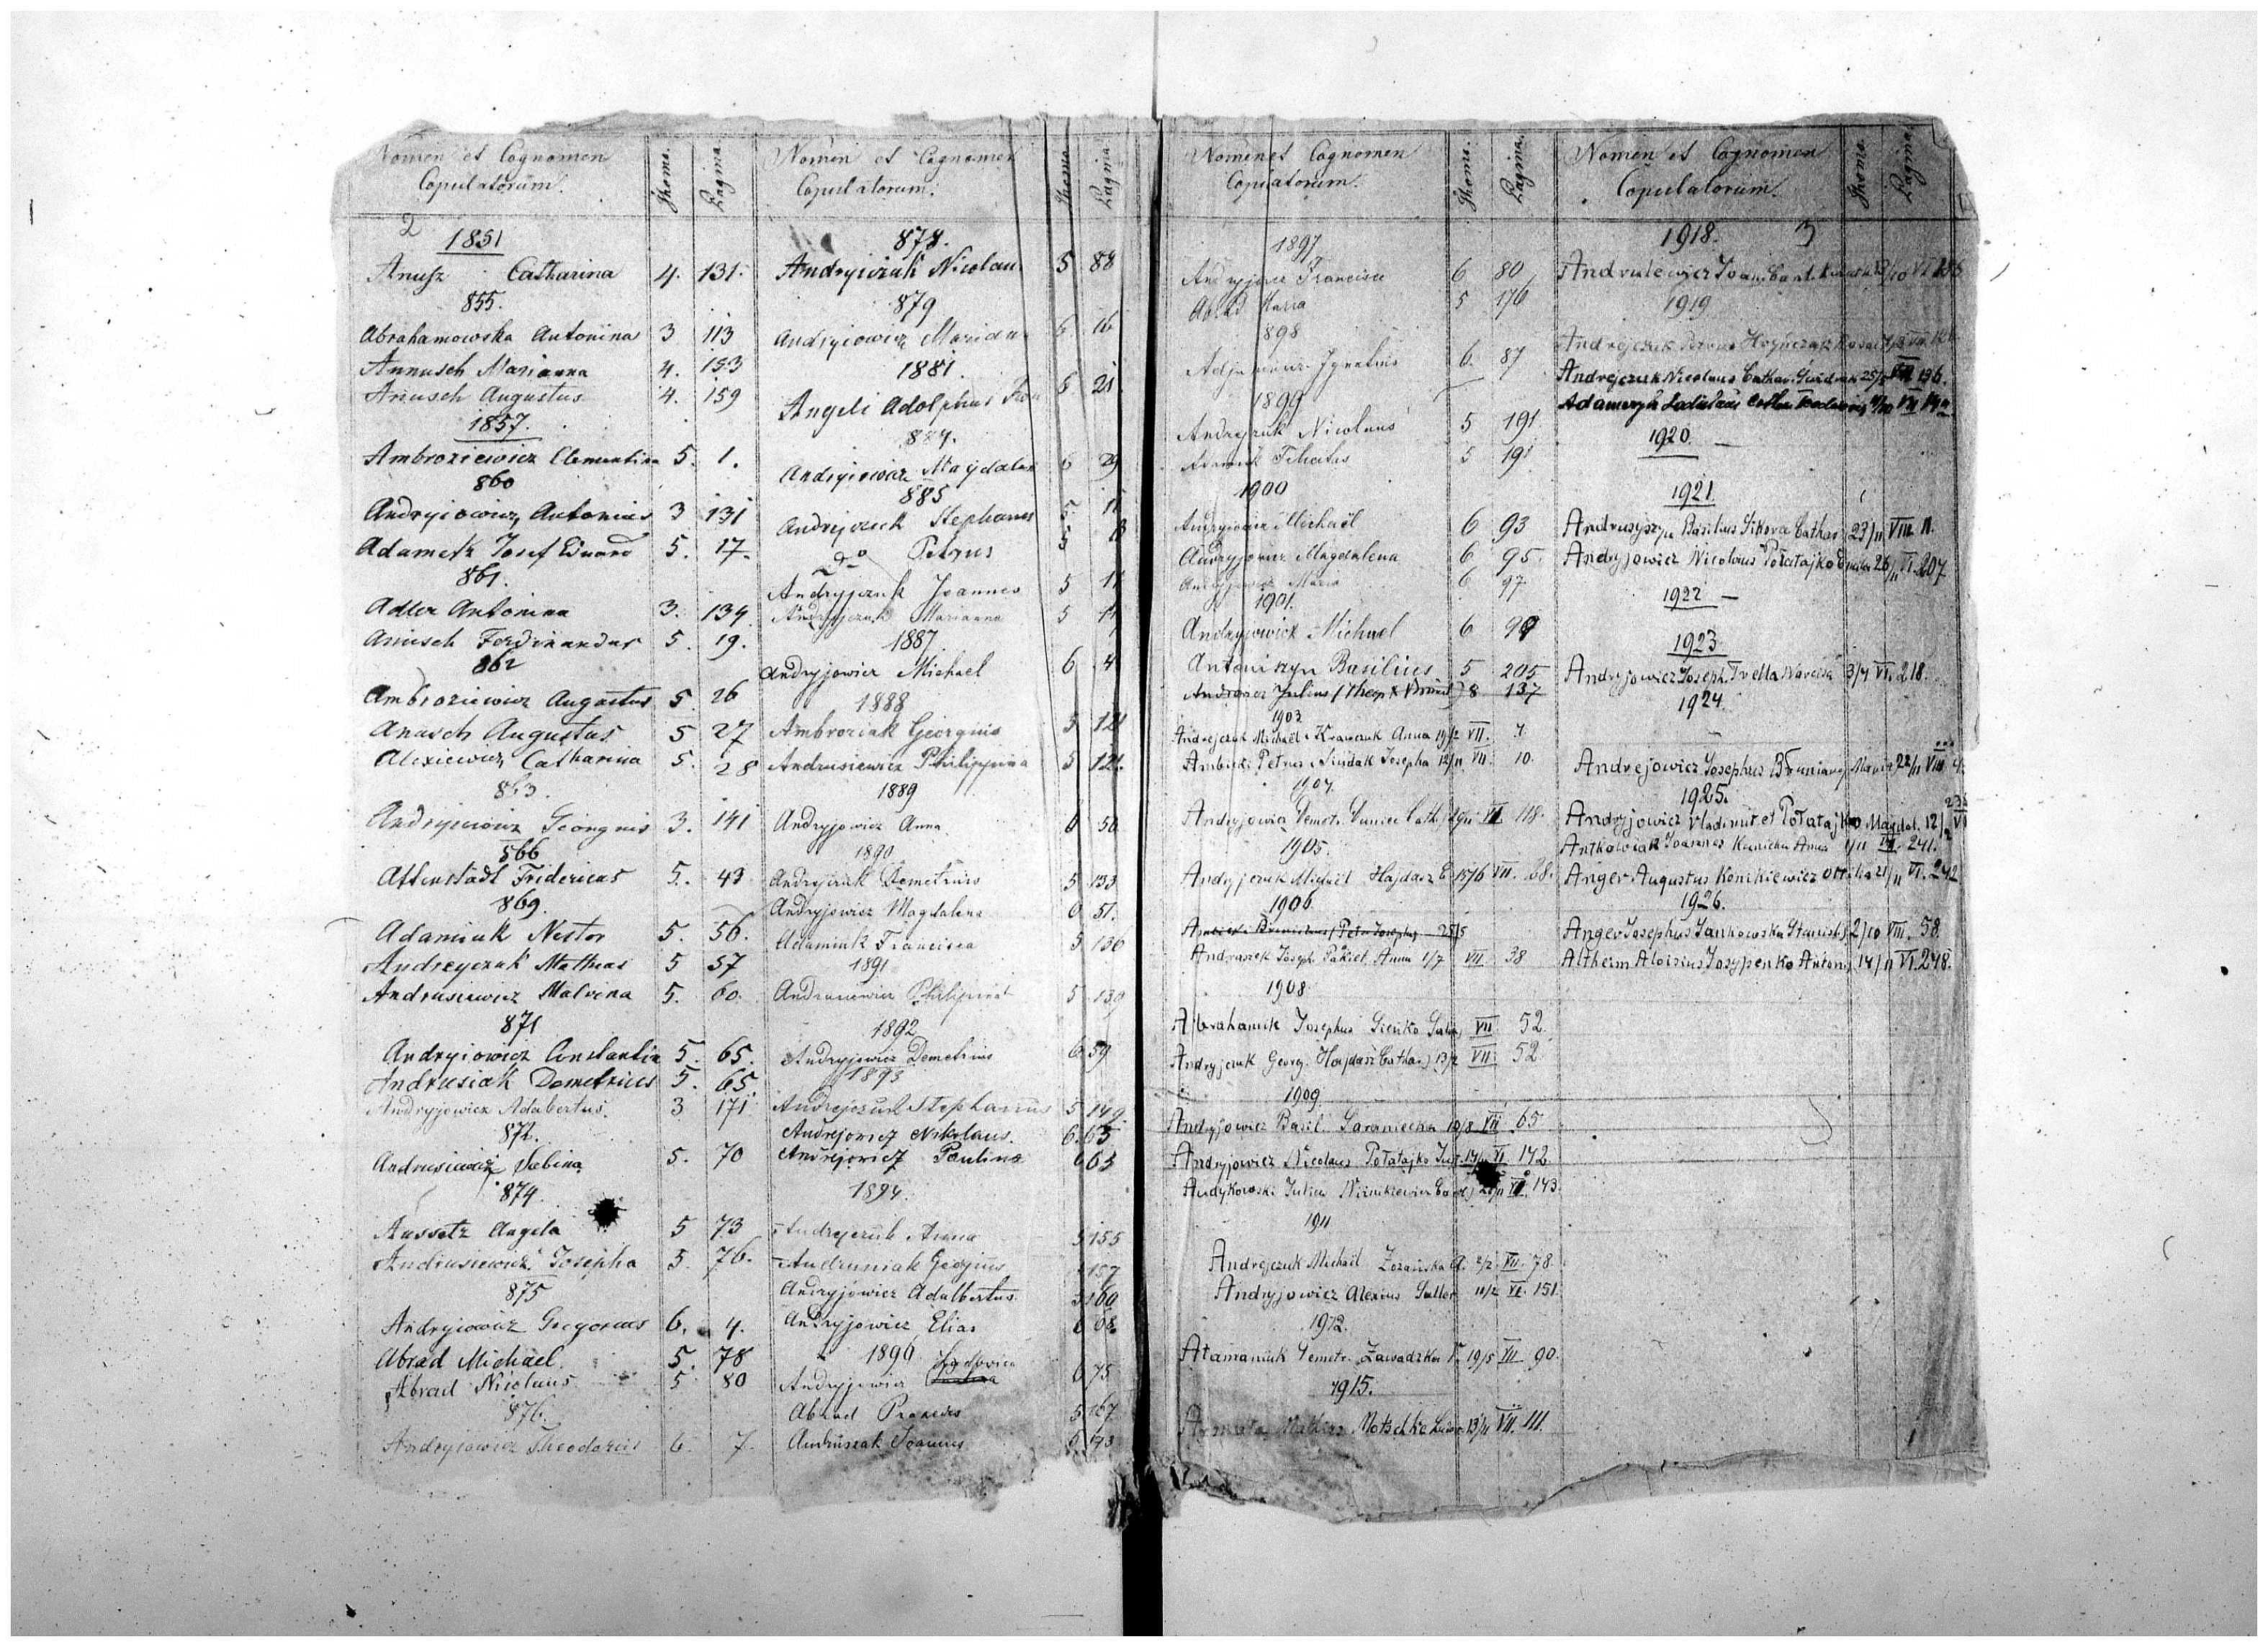 Nomen et Cognomen
Copulatorum.
Thoms.
Pagina.
2
1851
Anusz Catharina 4. 131.
855.
Abrahamowska Antonina 3 113
Annusch Marianna 4. 153
Anusch Augustus 4. 159
1857.
Ambroziewicz Clementina 5. 1.
860
Andryiowicz Antonius 3 131
Adametz Josef Eduard 5. 17.
861.
Adler Antonina 3. 134
Anusch Ferdinandus 5. 19.
862
Ambroziewicz Augustus 5. 26
Anusch Augustus 5 27
Alexiewicz Catharina 5. 28
863.
Andryiowicz Georgius 3. 141
566
Altenstadt Fridericus 5. 43
869.
Adamiuk Nestor 5. 56.
Andreyczuk Mathias 5 57
Andrusiewicz Malvina 5. 60.
871
Andryiowicz Constantin 5. 65.
Andrusiak Demetrius 5. 65
Andryjowicz Adabertus. 3 171
872.
Andrusiewicz Sabina 5. 70
874.
Aussetz Angela 5 73
Andrusiewicz Josepha 5. 76.
875
Andryiowicz Gregorius 6. 4.
Abrad Michael. 5. 78
Abrad Nicolaus 5 80
876.
Andryiowicz Theodorus 6. 7.
Nomen et Cognomen
Copulatorum.
Thoms.
Pagina.
878.
Andryiczuk Nicolau 5 88
879
Andryiowicz Maria 6. 16
1881.
Angeli Adolphus 5 21
884.
Andryiowicz Magdalen 6 29
885
Andrejczuk Stephanus 5. 11
do Petrus 5
Andryjczuk Joannes 5 11
Andryjczuk Marianna 5 11
1887.
Andryjowicz Michael 6 4
1888
Ambroziak Georgius 5 121
Andrusiewicz Philippina 5 121.
1889
Andryjowicz Anna 6 50
1890
Andrejczuk Demetrius 5 133
Andryjowicz Magdalena 6 51.
Adamiuk Francisca 5 136
1891
Andrusiewicz Philipina 5 139
1892
Andryjowicz Demetrius 6 59
1893
Andrejczuk Stephanus 5 149
Andrejowicz Nikolaus. 6. 63
Andrejowicz Paulina 6 63
1894.
Andrejczuk Anna 5 155
Andruniak Georgius 157
Andryjowicz Adalbertus. 5 160
Andryjowicz Elias 6 68
1896
Andryjowicz Ludovica 6 75
Abrad Praxedes 5 167
Andrusiak Joannes 5 173
Nomen et Cognomen
Copulatorum.
Thoms.
Pagina.
1897
Andryjowicz Francisca 6 80
Abrad Maria 5 176
1898
Ignatius 6. 87
1899
Andrejczuk Nicolaus 5 191
5 191
1900
Andryjowicz Michaël 6 93
Andryjowicz Magdalena 6 95.
Andryjowicz Maria 6 97.
1901.
Andryjowicz Michael 6 99
Antoniszyn Basilius 5 205
Andraszcz Julius 8 137
1903
Andrejczuk Michaël Krawczuk Anna 19/2 VII. 7.
Ambicki Petrus Nindak Josepha 12/11 VII. 10.
1904.
Andryjowicz Demetr. Duniec Cath. 29/11 VI 118.
1905.
Andryjczuk Michaël Hajdasz E 15/6 VII. 28.
1906.
Andraszek Joseph Pakiet Anna 1/7 VII 38
1908
Abrahamik Josephus Sieńko VII 52.
Andryjczuk Georg. Hajdasz Cathar. 13/2 VII. 52
1909
Andryjowicz Basil. Saraniecka 19/8 VII 65
Andryjowicz Nicolaus Połatajko VI. 142
Andykowski Julius VI. 143.
1911
Andrejczuk Michaël A. 2/2 VII. 78.
Andryjowicz Alexius Suller 11/2 VI. 151
1912.
Atamaniuk Demetr. Zawadzka 19/5 VII 90.
1915.
Motschke 13/11 VII. 111.
Nomen et Cognomen
Copulatorum.
Thoms.
Pagina.
1918. 3
Andrulewicz Joan.
1919
Andrejczuk Hryńczak
Andrejczuk Nicolaus Cathar. 25/5 VII 136.
Adamczyk Ladislaus
1920. —
1921.
Andrusyszyn Basilius Sikora Cathar. 23/11 VIII 11.
Andryjowicz Nicolaus Połatajko 26/11 VI. 207
1922 —
1923
Andryjowicz Joseph. Trella Narcisa 3/7 VI. 218.
1924.
Andrejowicz Josephus Maria 22/11 VIII 4.
1925.
Andryjowicz Vladimir et Połatajko Magdal. 12/2 VI
Antkowiak Joannes Kunicka Anna 1/11 VI. 241.
Anger Augustus Konikiewicz 21/11 VI. 242
1926.
Anger Josephus Jankowska Stanisl. 2/10 VIII. 58.
Altheim Aloisius Josypenko Anton. 14/11 VI. 248.